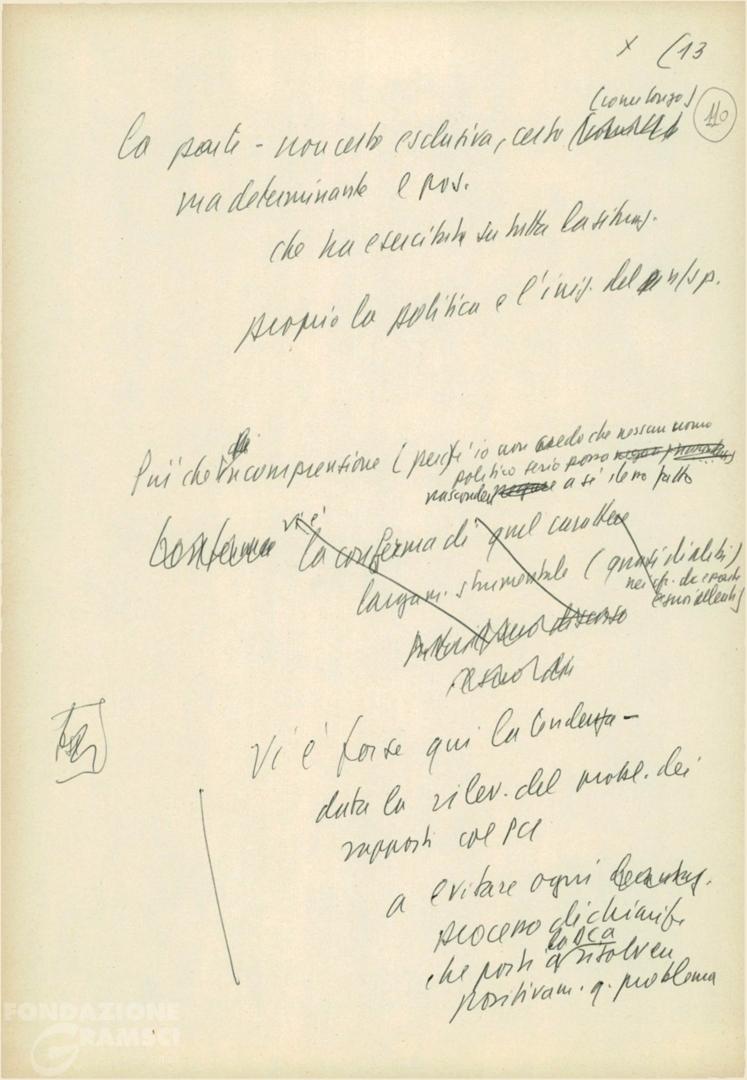 x (13
110
(come Longo)
La parte - non certo esclusiva, certo
ma determinante e pos.
che ha esercitato su tutta la situaz.
proprio la politica e l'iniz. del n/ p.
Più che di incomprensione (perché io non credo che nessun uomo
politico serio possa
nascondere a sé stesso fatto
vi è
la conferma di quel carattere
largam. strumentale (quasi
discorso
Vi è forse qui la tendenza -
data la rilev. del probl. dei
rapporti col PCI
a evitare ogni
processo di chiarif.
la DC a
che porti a risolvere
positivam. q. problema
FONDAZIONE
GRAMSCI